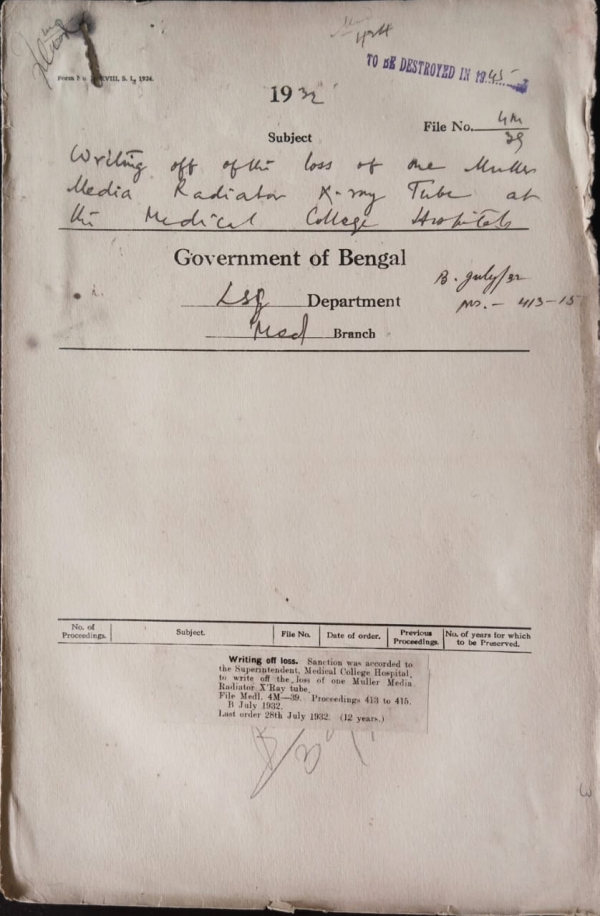 TO BE DESTROYED IN 1945
XVIII. S. I., 1924.
1932
File No. 4M
39
Subject
Writing off of the loss of one Muller
Media Radiator X-ray Tube at
the Medical College Hospitals
Government of Bengal
B. July/32
LSG Department
Nos. - 413-15
Med Branch
No. of Proceedings.
Subject.
File No.
Date of order.
Previous Proceedings.
No. of years for which to be Preserved.
Writing off loss. Sanction was accorded to
the Superintendent, Medical College Hospital,
to write off the loss of one Muller Media
Radiator X'Ray tube.
File Medl. 4M—39. Proceedings 413 to 415.
B July 1932.
Last order 28th July 1932. (12 years.)